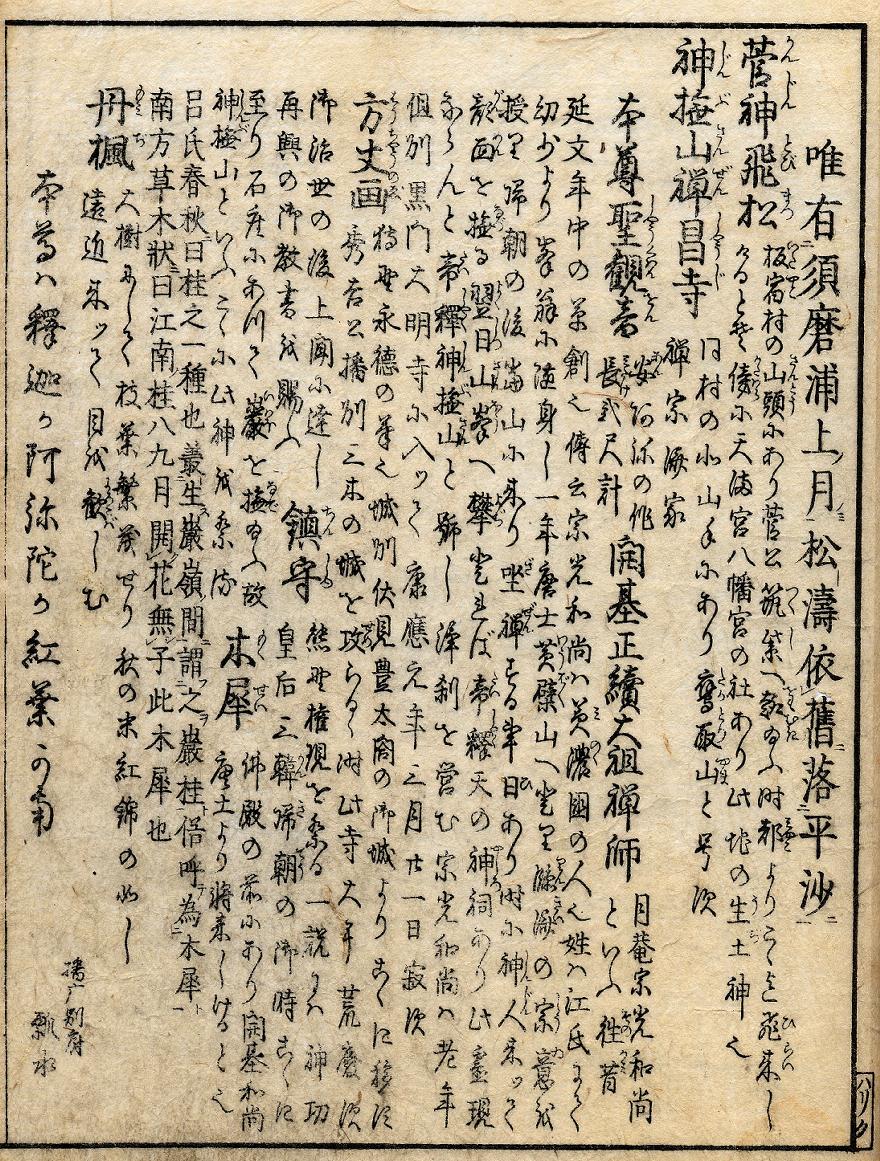 唯有須磨浦上月松濤依舊落平沙
菅神飛松 板宿村の山頭にあり菅公筑紫へ赴給ふ時都よりこゝに飛来し
けるとぞ傍に天満宮八幡宮の社あり此地の生土神也
神撫山禅昌寺 同村の北山手にあり鷹取山と号す
禅宗済家
本尊聖観音 安阿弥の作
長弐尺計 開基正續大祖禅師 月菴宗光和尚
といふ往昔
延文年中の草創也傳云宗光和尚ハ美濃國の人也姓ハ江氏にて
幼少より峯翁に随身し一年唐土黄檗山へ登里
授里帰朝の後当山に来り坐禅する事日あり時に神人来ッて
顔面を撫る翌日山峯へ攀登れば帝釋天の神祠あり此霊現
ならんと帝釋神撫山と号し浄刹を営む宗光和尚ハ老年
但州黒門大明寺に入ッて康應元年三月廿一日寂す
方丈画 狩埜永徳の筆也城州伏見豊太閤の御城よりこゝに移す
秀吉公播州三木の城を攻らるゝ時此寺大半荒廃す
御治世の後上聞に達し
再興の御教書を賜ふ 鎮守 熊埜権現を祭る一説にハ神功
皇后三韓帰朝の御時こゝに
至り石座にあつて巌を撫給ふ故
神撫山といふこゝに此神を祭る 木犀 佛殿の前にあり開基和尚
唐土より将来しけるとぞ
呂氏春秋曰桂之一種也叢生巖嶺間謂之巖桂俗呼為木犀
南方草木状曰江南桂八九月開花無子此木犀也
丹楓 大樹にして枝葉繁茂せり秋の末紅錦の如し
遠近来ッて目を歓しむ
本尊ハ釋迦か阿弥陀か紅葉かな
播州別府
瓢水
ハリ九